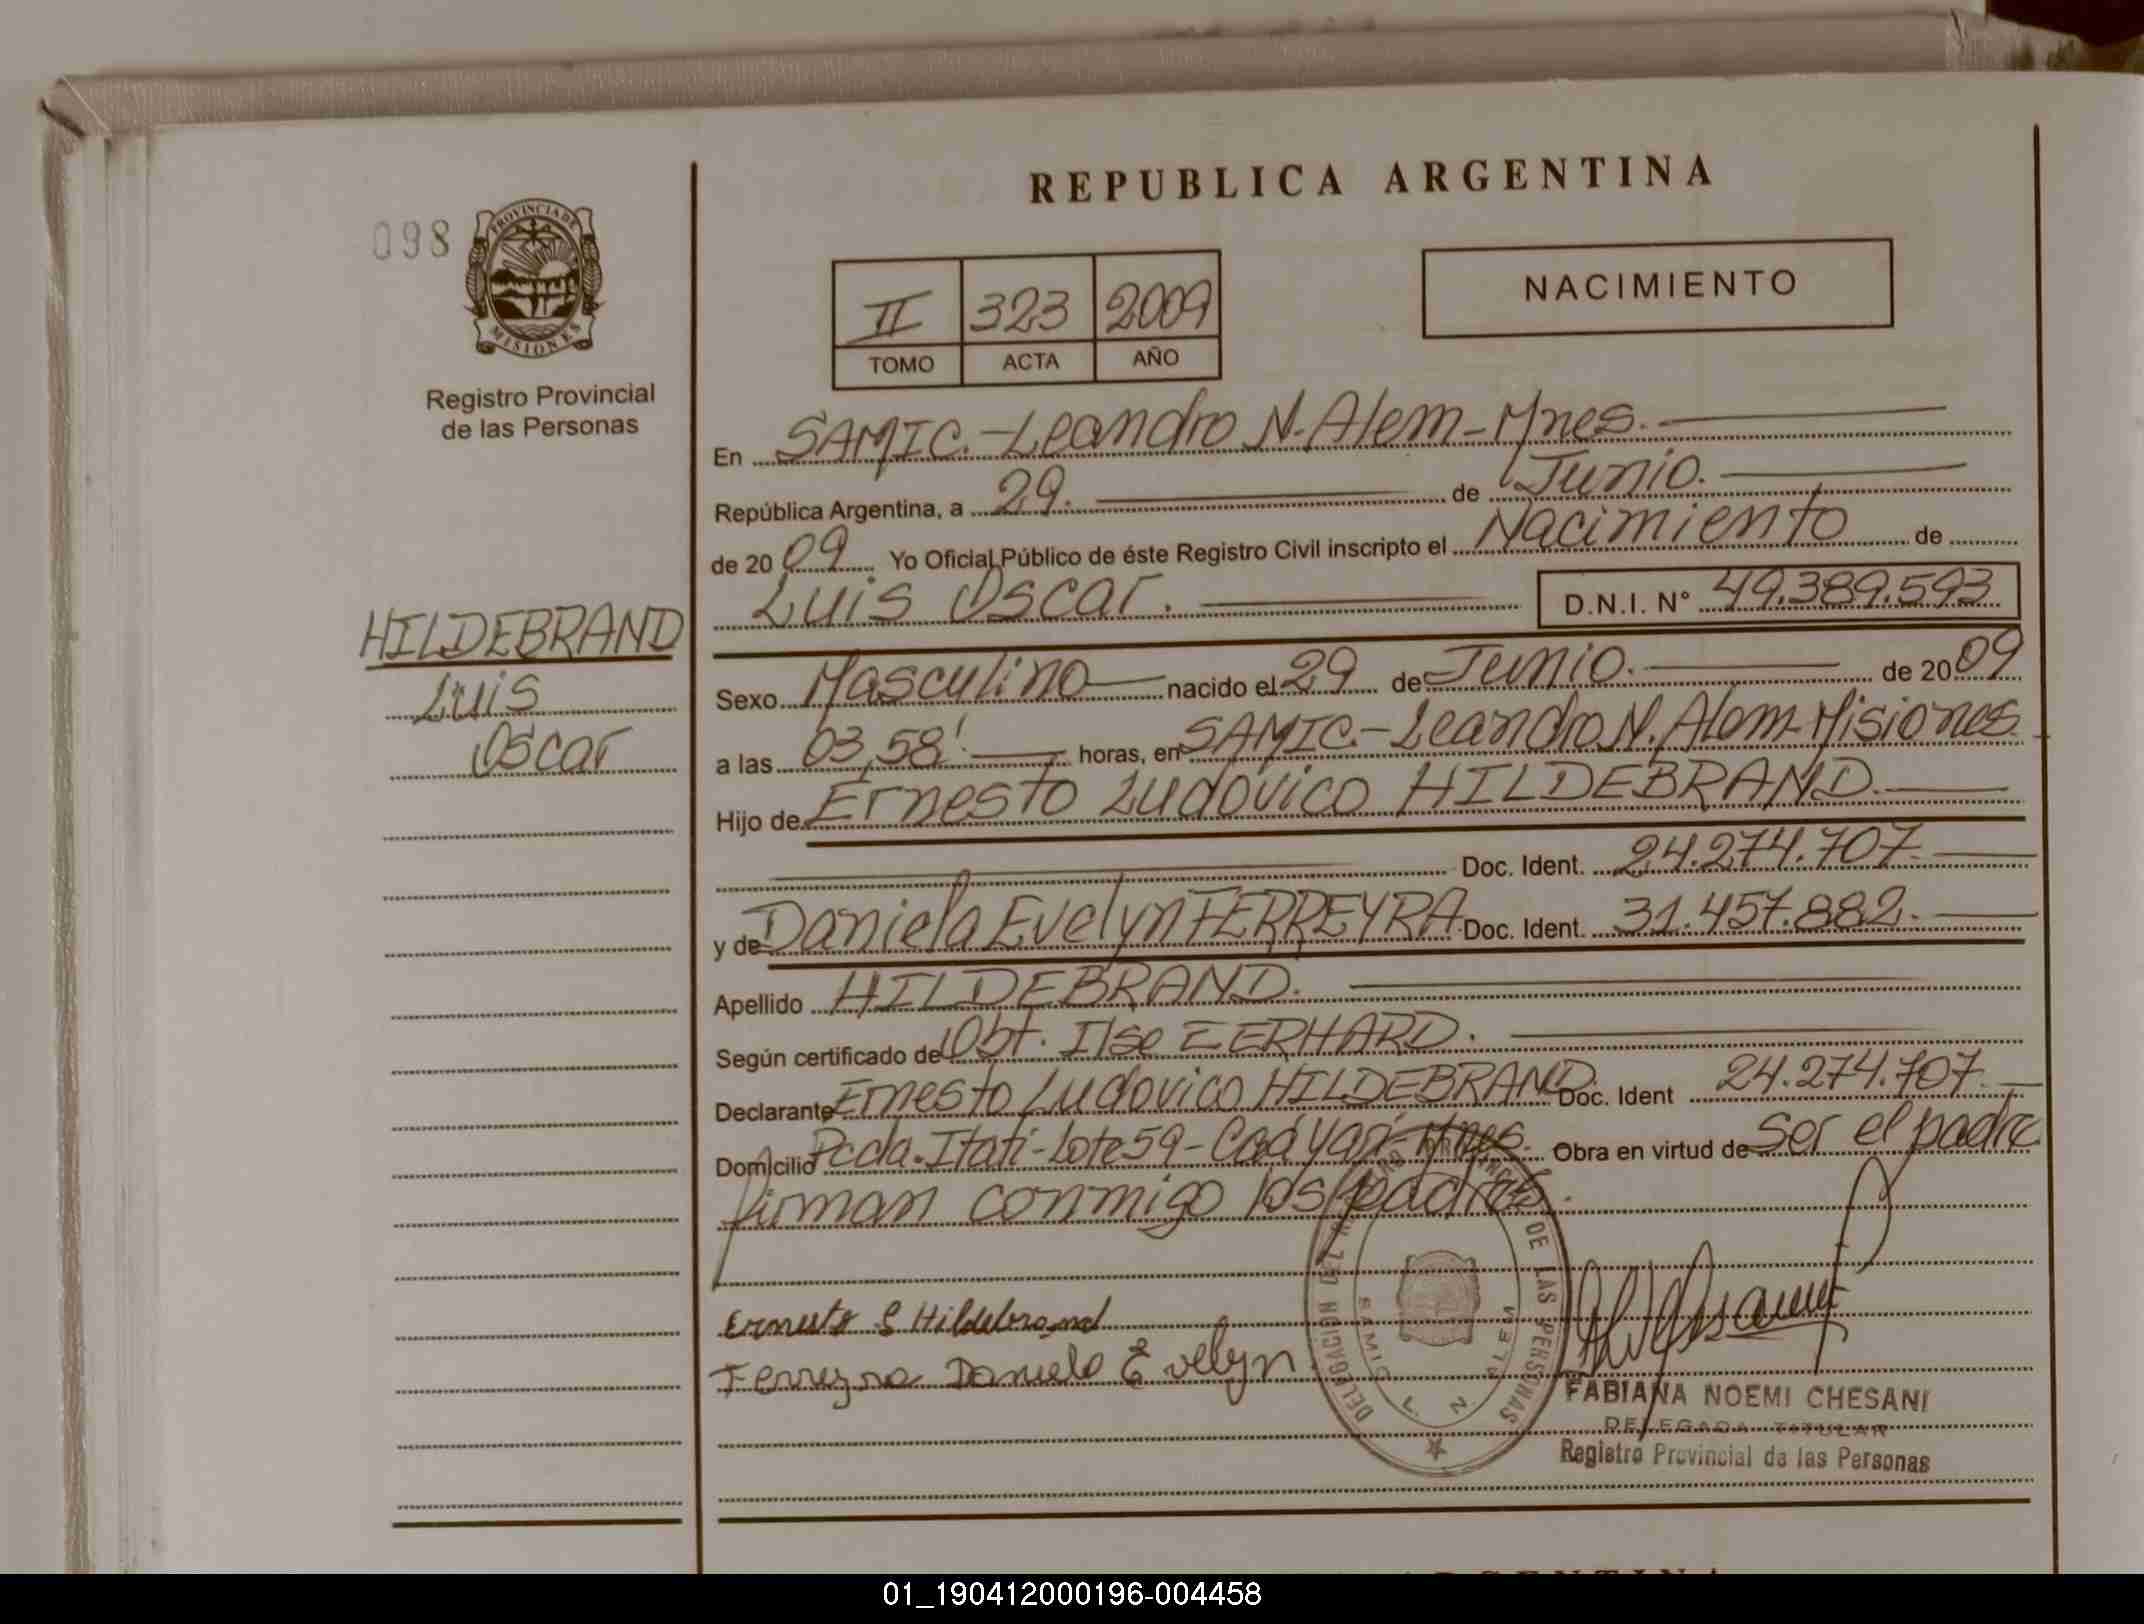 REPUBLICA ARGENTINA
098
PROVINCIA DE MISIONES
Registro Provincial
de las Personas
II 323 2009
TOMO ACTA AÑO
NACIMIENTO
En SAMIC.-Leandro N. Alem-Mnes.
República Argentina, a 29. de Junio.
de 20 09 Yo Oficial Público de éste Registro Civil inscripto el Nacimiento de
Luis Oscar. D.N.I. N° 49.389.593
HILDEBRAND
Luis
Oscar
Sexo Masculino nacido el 29 de Junio. de 20 09
a las 03,58'. horas, en SAMIC.-Leandro N. Alem-Misiones.
Hijo de Ernesto Ludovico HILDEBRAND.
Doc. Ident. 24.274.707.
y de Daniela Evelyn FERREYRA. Doc. Ident. 31.457.882.
Apellido HILDEBRAND.
Según certificado de Obt. Ilse EERHARD.
Declarante Ernesto Ludovico HILDEBRAND. Doc. Ident 24.274.707.
Domicilio Pcda. Itatí-Lote 59-Caá Yarí-Mnes. Obra en virtud de Ser el padre
firman conmigo los padres.
Ernesto L Hildebrand
Ferreyra Daniela Evelyn
DELEGACION DEL REGISTRO PROVINCIAL DE LAS PERSONAS
SAMIC L. N. ALEM
FABIANA NOEMI CHESANI
DELEGADA TITULAR
Registro Provincial de las Personas
01_190412000196-004458